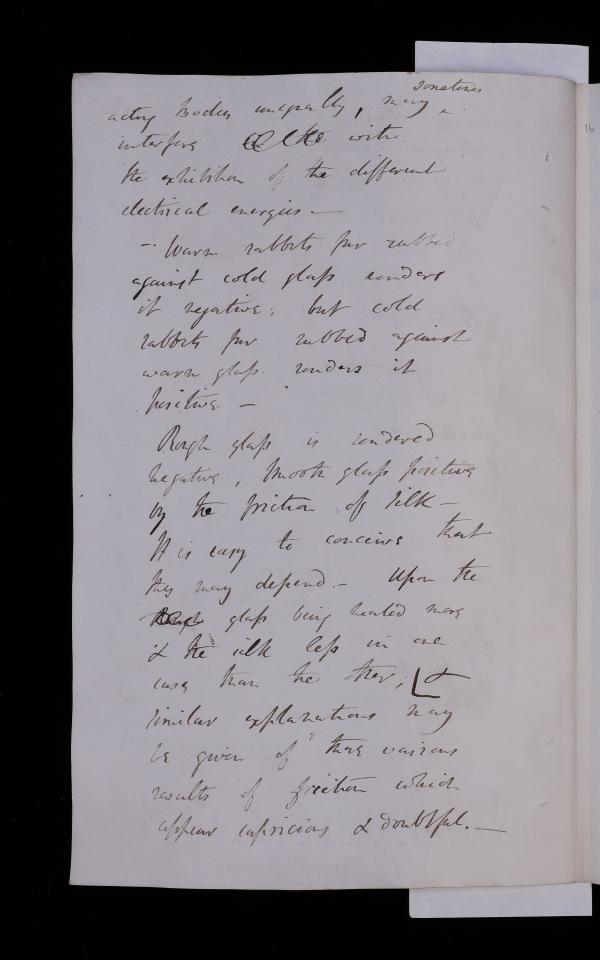 sometimes
acting Bodies unequally, may ^
interfere with
the exhibition of the different
electrical energies —
- Warm rabbits fur rubbed
against cold glass renders
it negative; but cold
rabbits fur rubbed against
warm glass renders it
positive —
Rough glass is rendered
negative, smooth glass positive
by the friction of silk —
It is easy to conceive that
this may depend — Upon the
glass being heated more
& the silk less in one
case than the other; [&
similar explanations may
be given of these various
results of friction which
appear capricious & doubtful. —
16